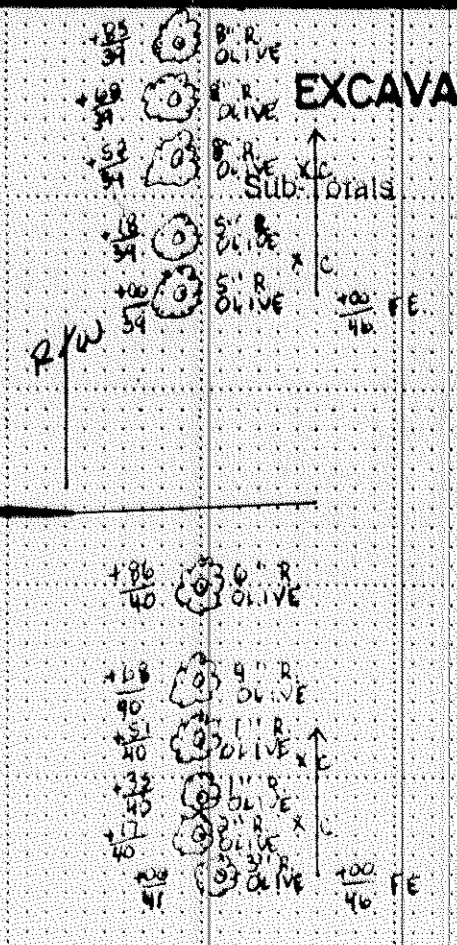 +85
39
8" R.
OLIVE
EXCAVA
+69
39
8" R
OLIVE
+52
39
8" R.
OLIVE
x C
Sub-Totals
+18
39
5" R
OLIVE
x C
+00
39
5" R
OLIVE
+00
46
FE
R/W
+86
40
6" R
OLIVE
+68
40
R
OLIVE
+51
40
R
OLIVE
x C
+35
R
OLIVE
+17
40
R
OLIVE
x C
+00
41
3" R
OLIVE
+00
46
FE